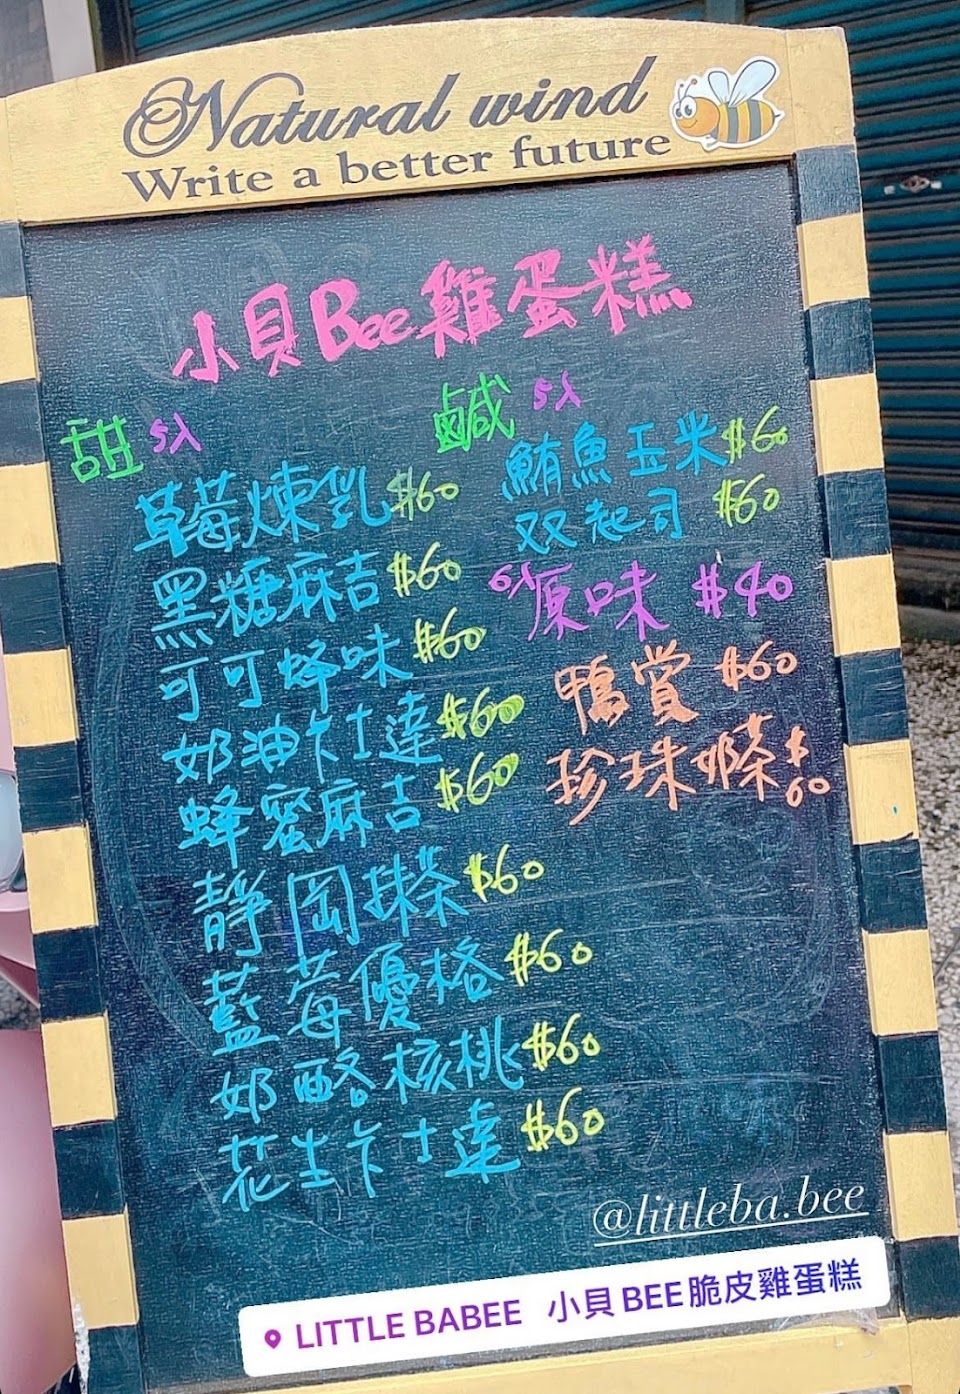 Natural wind
Write a better future
小貝Bee雞蛋糕
甜 5入
草莓煉乳 $60
黑糖麻吉 $60
可可蜂味 $60
奶油卡士達 $60
蜂蜜麻吉 $60
靜岡抹茶 $60
藍莓優格 $60
奶酪核桃 $60
花生卡士達 $60
鹹 5入
鮪魚玉米 $60
双起司 $60
6入 原味 $40
鴨賞 $60
珍珠奶茶 $60
@littleba.bee
LITTLE BABEE 小貝BEE脆皮雞蛋糕